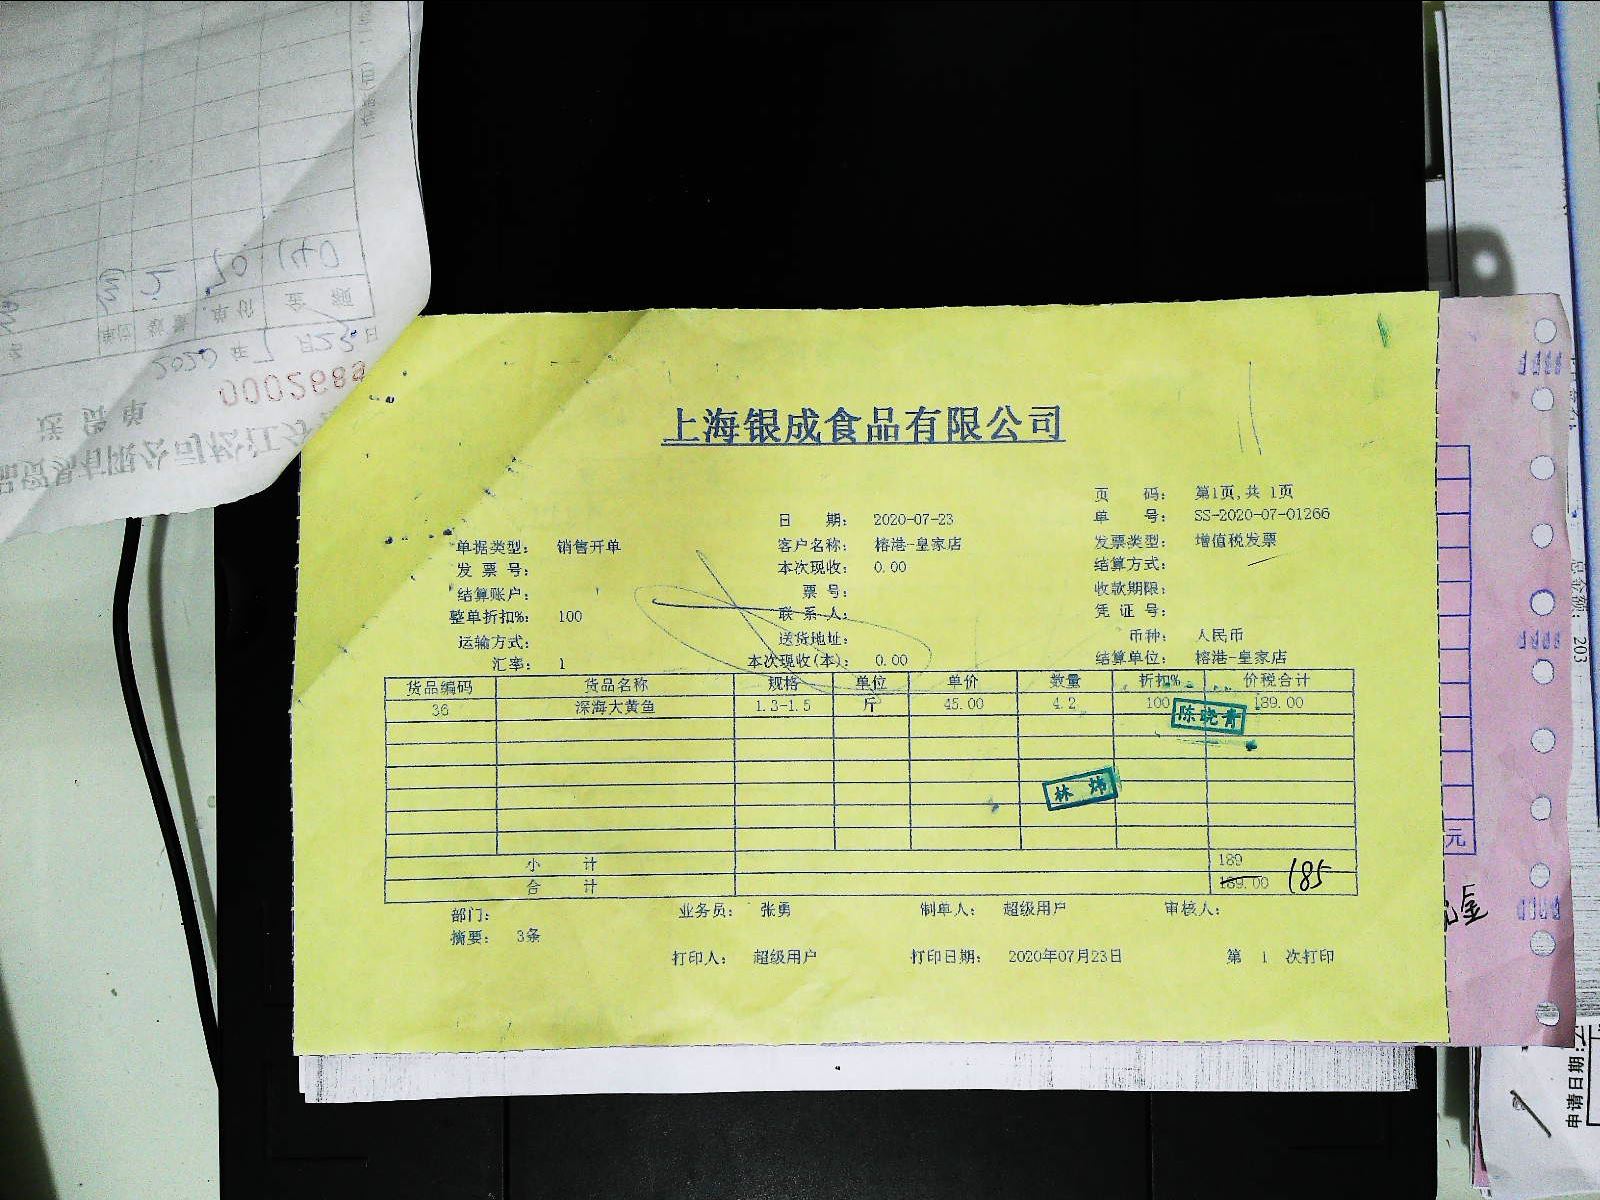 上海银成食品有限公司
页 码： 第1页，共 1页
日 期： 2020-07-23 单 号： SS-2020-07-01266
单据类型： 销售开单 客户名称： 榕港-皇家店 发票类型： 增值税发票
发 票 号： 本次现收： 0.00 结算方式：
结算账户： 票 号： 收款期限：
整单折扣%： 100 联 系 人： 凭 证 号：
运输方式： 送货地址： 币种： 人民币
汇率： 1 本次现收(本)： 0.00 结算单位： 榕港-皇家店
货品编码 货品名称 规格 单位 单价 数量 折扣% 价税合计
36 深海大黄鱼 1.3-1.5 斤 45.00 4.2 100 189.00
陈晓青
林炜
小 计 189
合 计 189.00 185
部门： 业务员： 张勇 制单人： 超级用户 审核人：
摘要： 3条
打印人： 超级用户 打印日期： 2020年07月23日 第 1 次打印
0002689
送 货 单
2020 年 7 月 23 日
单位 数量 单价 金 额
2 70 140
元
总金额： 203
申请日期：